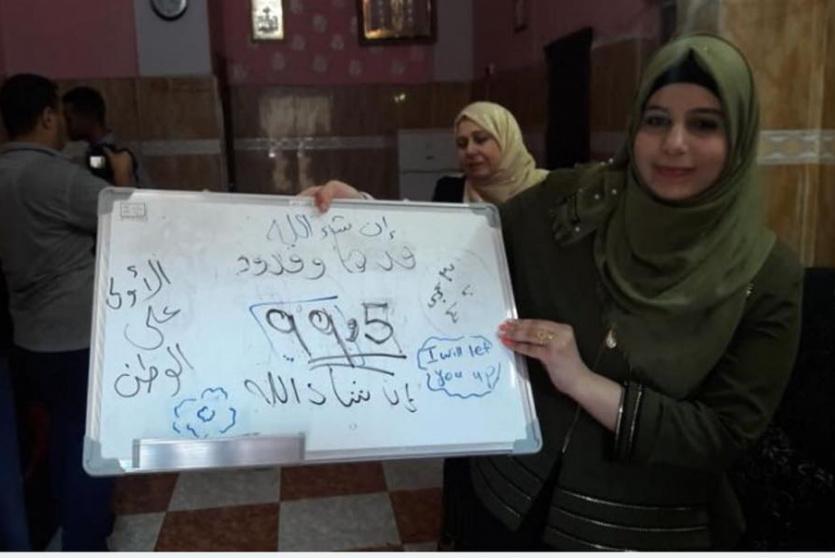 إن شاء الله
قدها وقدود
الأولى
على
الوطن
99,5
I will let
you up
إن شاء الله